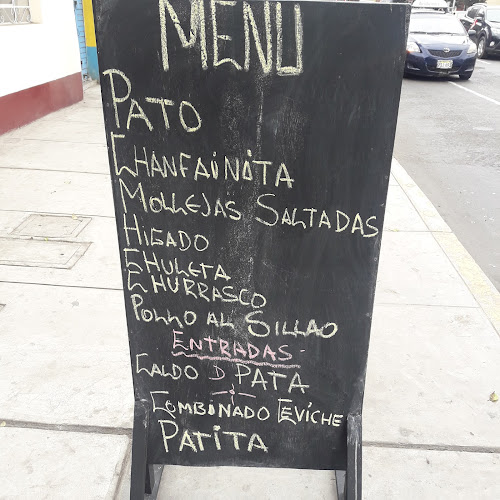 MENU
PATO
CHANFAINITA
MOLLEJAS SALTADAS
HIGADO
CHULETA
CHURRASCO
POLLO AL SILLAO
ENTRADAS
CALDO D PATA
COMBINADO CEVICHE
PATITA